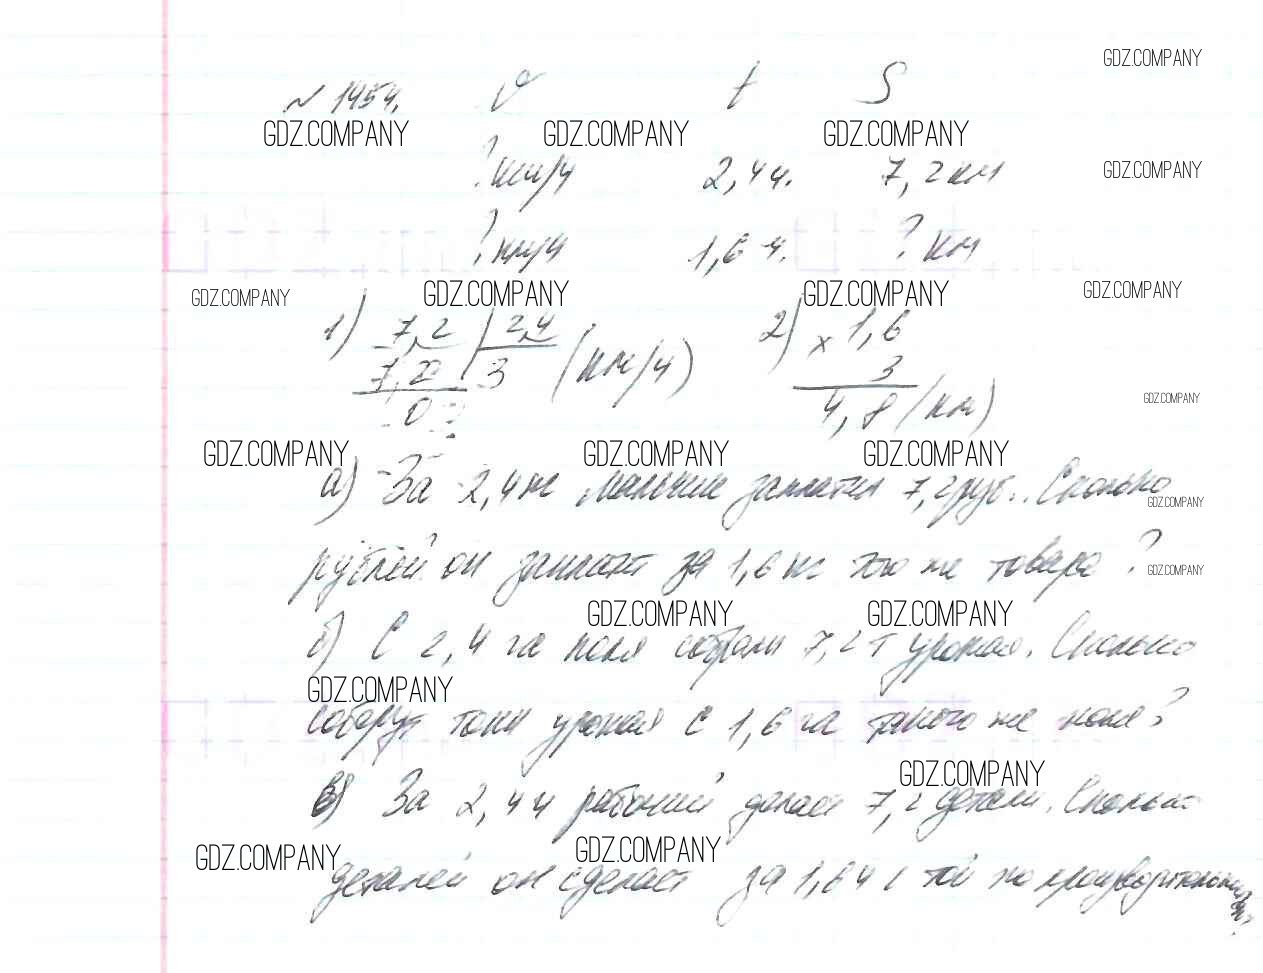 GDZ.COMPANY
№ 1454. v t S
GDZ.COMPANY GDZ.COMPANY GDZ.COMPANY
? км/ч 2,4 ч. 7,2 км GDZ.COMPANY
? км/ч 1,6 ч. ? км
GDZ.COMPANY GDZ.COMPANY GDZ.COMPANY GDZ.COMPANY
1) 7,2 | 2,4 2) × 1,6
7,2 3 (км/ч) 3
0 4,8 (км)
GDZ.COMPANY
GDZ.COMPANY GDZ.COMPANY GDZ.COMPANY
а) За 2,4 кг мальчик заплатил 7,2 руб. Сколько
GDZ.COMPANY
рублей он заплатит за 1,6 кг того же товара?
GDZ.COMPANY
GDZ.COMPANY GDZ.COMPANY
б) С 2,4 га поля собрали 7,2 т урожая. Сколько
GDZ.COMPANY
соберут тонн урожая с 1,6 га такого же поля?
GDZ.COMPANY
в) За 2,4 ч рабочий делает 7,2 детали. Сколько
GDZ.COMPANY GDZ.COMPANY
деталей он сделает за 1,6 ч с той же